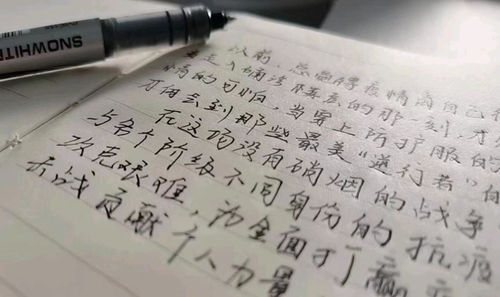 SNOWHITE
以前，总觉得疫情离自己很
走入确诊隔离的那一刻，才
情的可怕，当穿上防护服的
才体会到那些最美“逆行者”的
在这场没有硝烟的战争
与各个阶级不同身份的抗疫
攻克艰难，为全面打赢
示战贡献个人力量